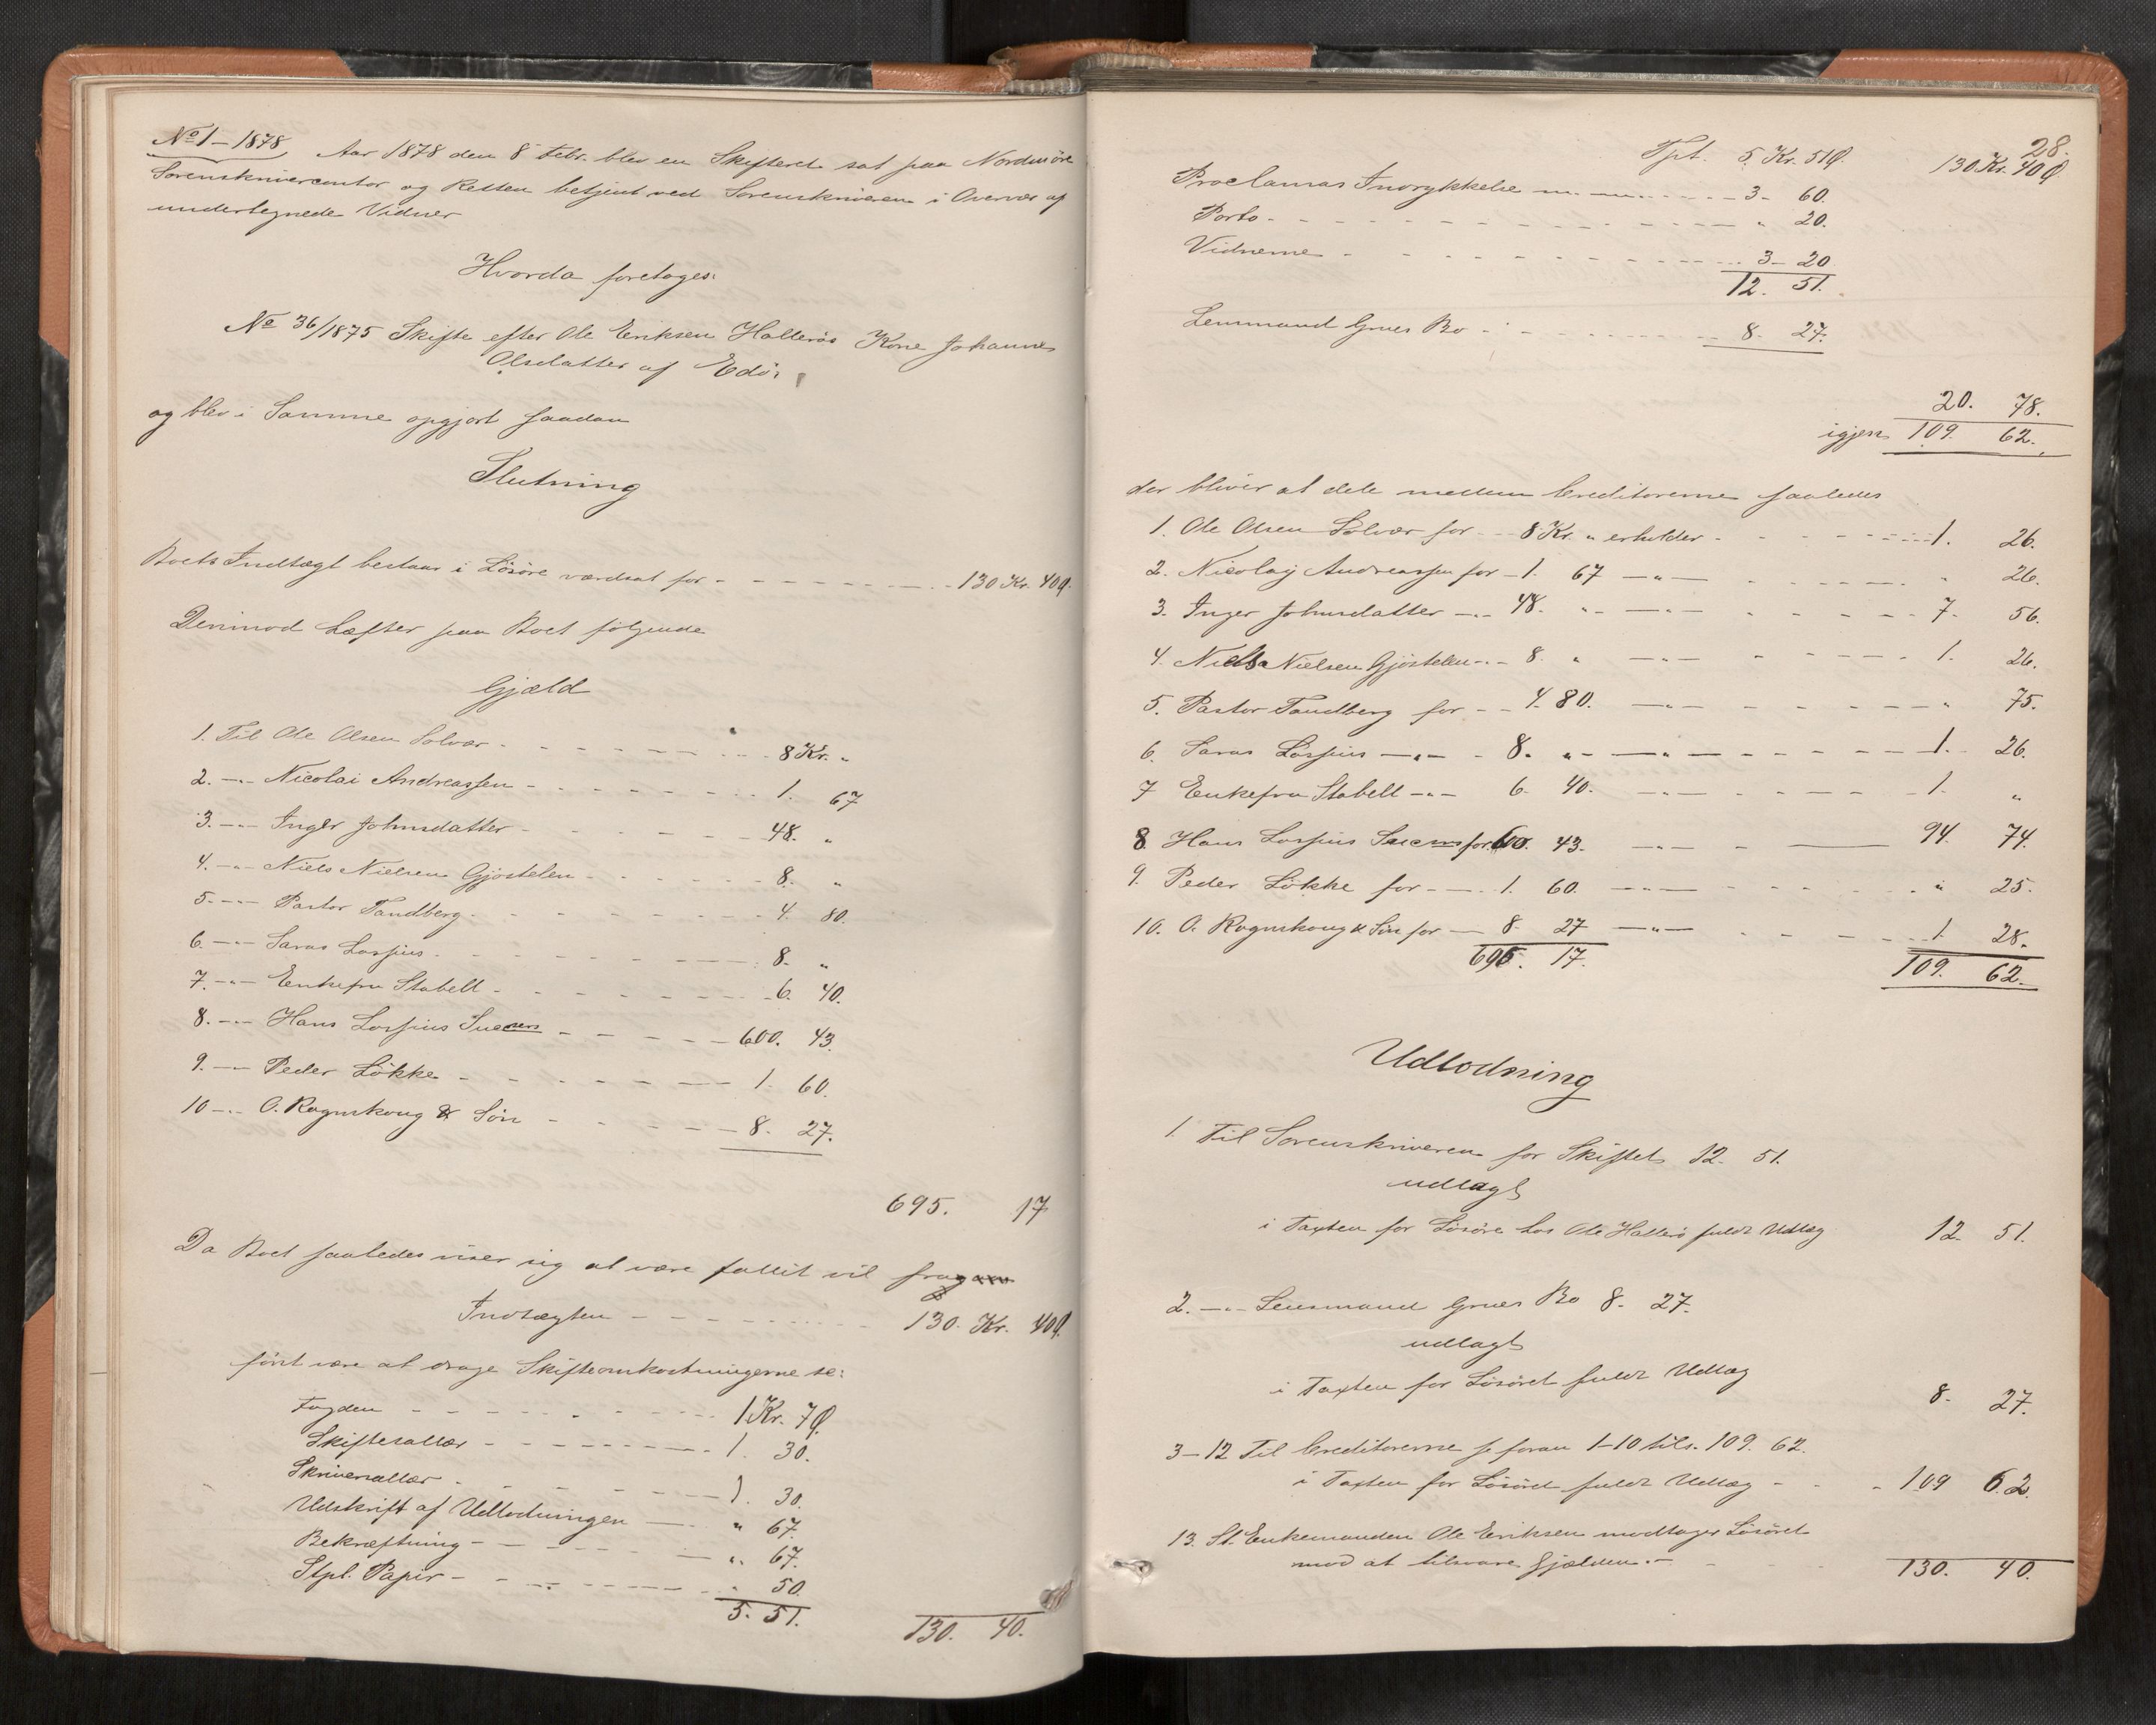 No 1 – 1878
Aar 1878 den 8 Febr. blev en Skifteret sat paa Nordmöre
Sorenskrivercontor og Retten betjent ved Sorenskriveren i Overvær af
undertegnede Vidner
Hvorda foretoges:
No 36/1875 Skifte efter Ole Eriksen Hallerös Kone Johanne
Olsdatter af Edö.
og blev i Samme opgjort saadan
Slutning
Boets Indtægt bestaar i Lösöre værdsat for - - - 130 Kr. 40 Ø.
Derimod hæfter paa Boet følgende
Gjæld
1. Til Ole Olsen Solvær - - - 8 Kr. "
2. –"– Nicolai Andreassen - - - 1. 67
3. –"– Inger Johnsdatter - - - 48. "
4. –"– Niels Nielsen Gjöstelen - - - 8. "
5. –"– Pastor Tandberg - - - 4. 80.
6. –"– Saras Lossius - - - 8. "
7. –"– Enkefru Stabell - - - 6. 40.
8. –"– Hans Lossius Succrs - - - 600. 43.
9. –"– Peder Lökke - - - 1. 60.
10 –"– O. Rognskoug & Sön - - - 8. 27.
695. 17
Da Boet saaledes viser sig at være fallit vil fra
Indtægten - - - 130. Kr. 40 Ø.
først være at drage Skifteomkostningerne se:
Fogden - - - 1 Kr. 7 Ø.
Skiftesallær - - - 1. 30.
Skriversallær - - - 1. 30.
Udskrift af Udlodningen - - - " 67.
Bekræftning - - - " 67.
Stpl. Papir - - - " 50.
5. 51.
130. 40.
28.
Tpt. 5 Kr. 51 Ø. 130 Kr. 40 Ø
Proclamas Indrykkelse m. m. - - - 3 - 60.
Porto - - - " 20.
Vidnerne - - - 3 - 20.
12. 51.
Lensmand Grues Bo - - - 8. 27.
20. 78.
igjen 109. 62.
der bliver at dele mellem Creditorerne saaledes
1. Ole Olsen Solvær for - - 8 Kr. " erholder - - - 1. 26.
2. Nicolaj Andreassen for - 1. 67 –"– - - - " 26.
3. Inger Johnsdatter –"– 48. " –"– - - - 7. 56.
4. Niels Nielsen Gjöstelen –"– 8. " –"– - - - 1. 26.
5. Pastor Tandberg for - - 4. 80. –"– - - - " 75.
6. Saras Lössius –"– 8. " –"– - - - 1. 26.
7 Enkefru Stabell –"– 6. 40. –"– - - - 1. "
8. Hans Lossius Succrs for 600. 43. –"– - - - 94. 74.
9. Peder Lökke for - - 1. 60. –"– - - - " 25.
10. O. Rognskoug & Sön for – 8. 27 –"– - - - 1. 28.
695. 17. 109. 62.
Udlodning
1. Til Sorenskriveren for Skiftet 12. 51.
udlagt
i Taxten for Lösöre hos Ole Hallerö fuldt Udlæg 12. 51.
2. –"– Lensmand Grues Bo 8. 27.
udlagt
i Taxten for Lösöret fuldt Udlæg 8. 27.
3–12 Til Creditorerne se foran 1–10 tils. 109. 62.
i Taxten for Lösöret fuldt Udlæg - - - 109 62.
13. St. Enkemanden Ole Eriksen modtager Lösöret
mod at tilsvare Gjælden. – 130. 40.